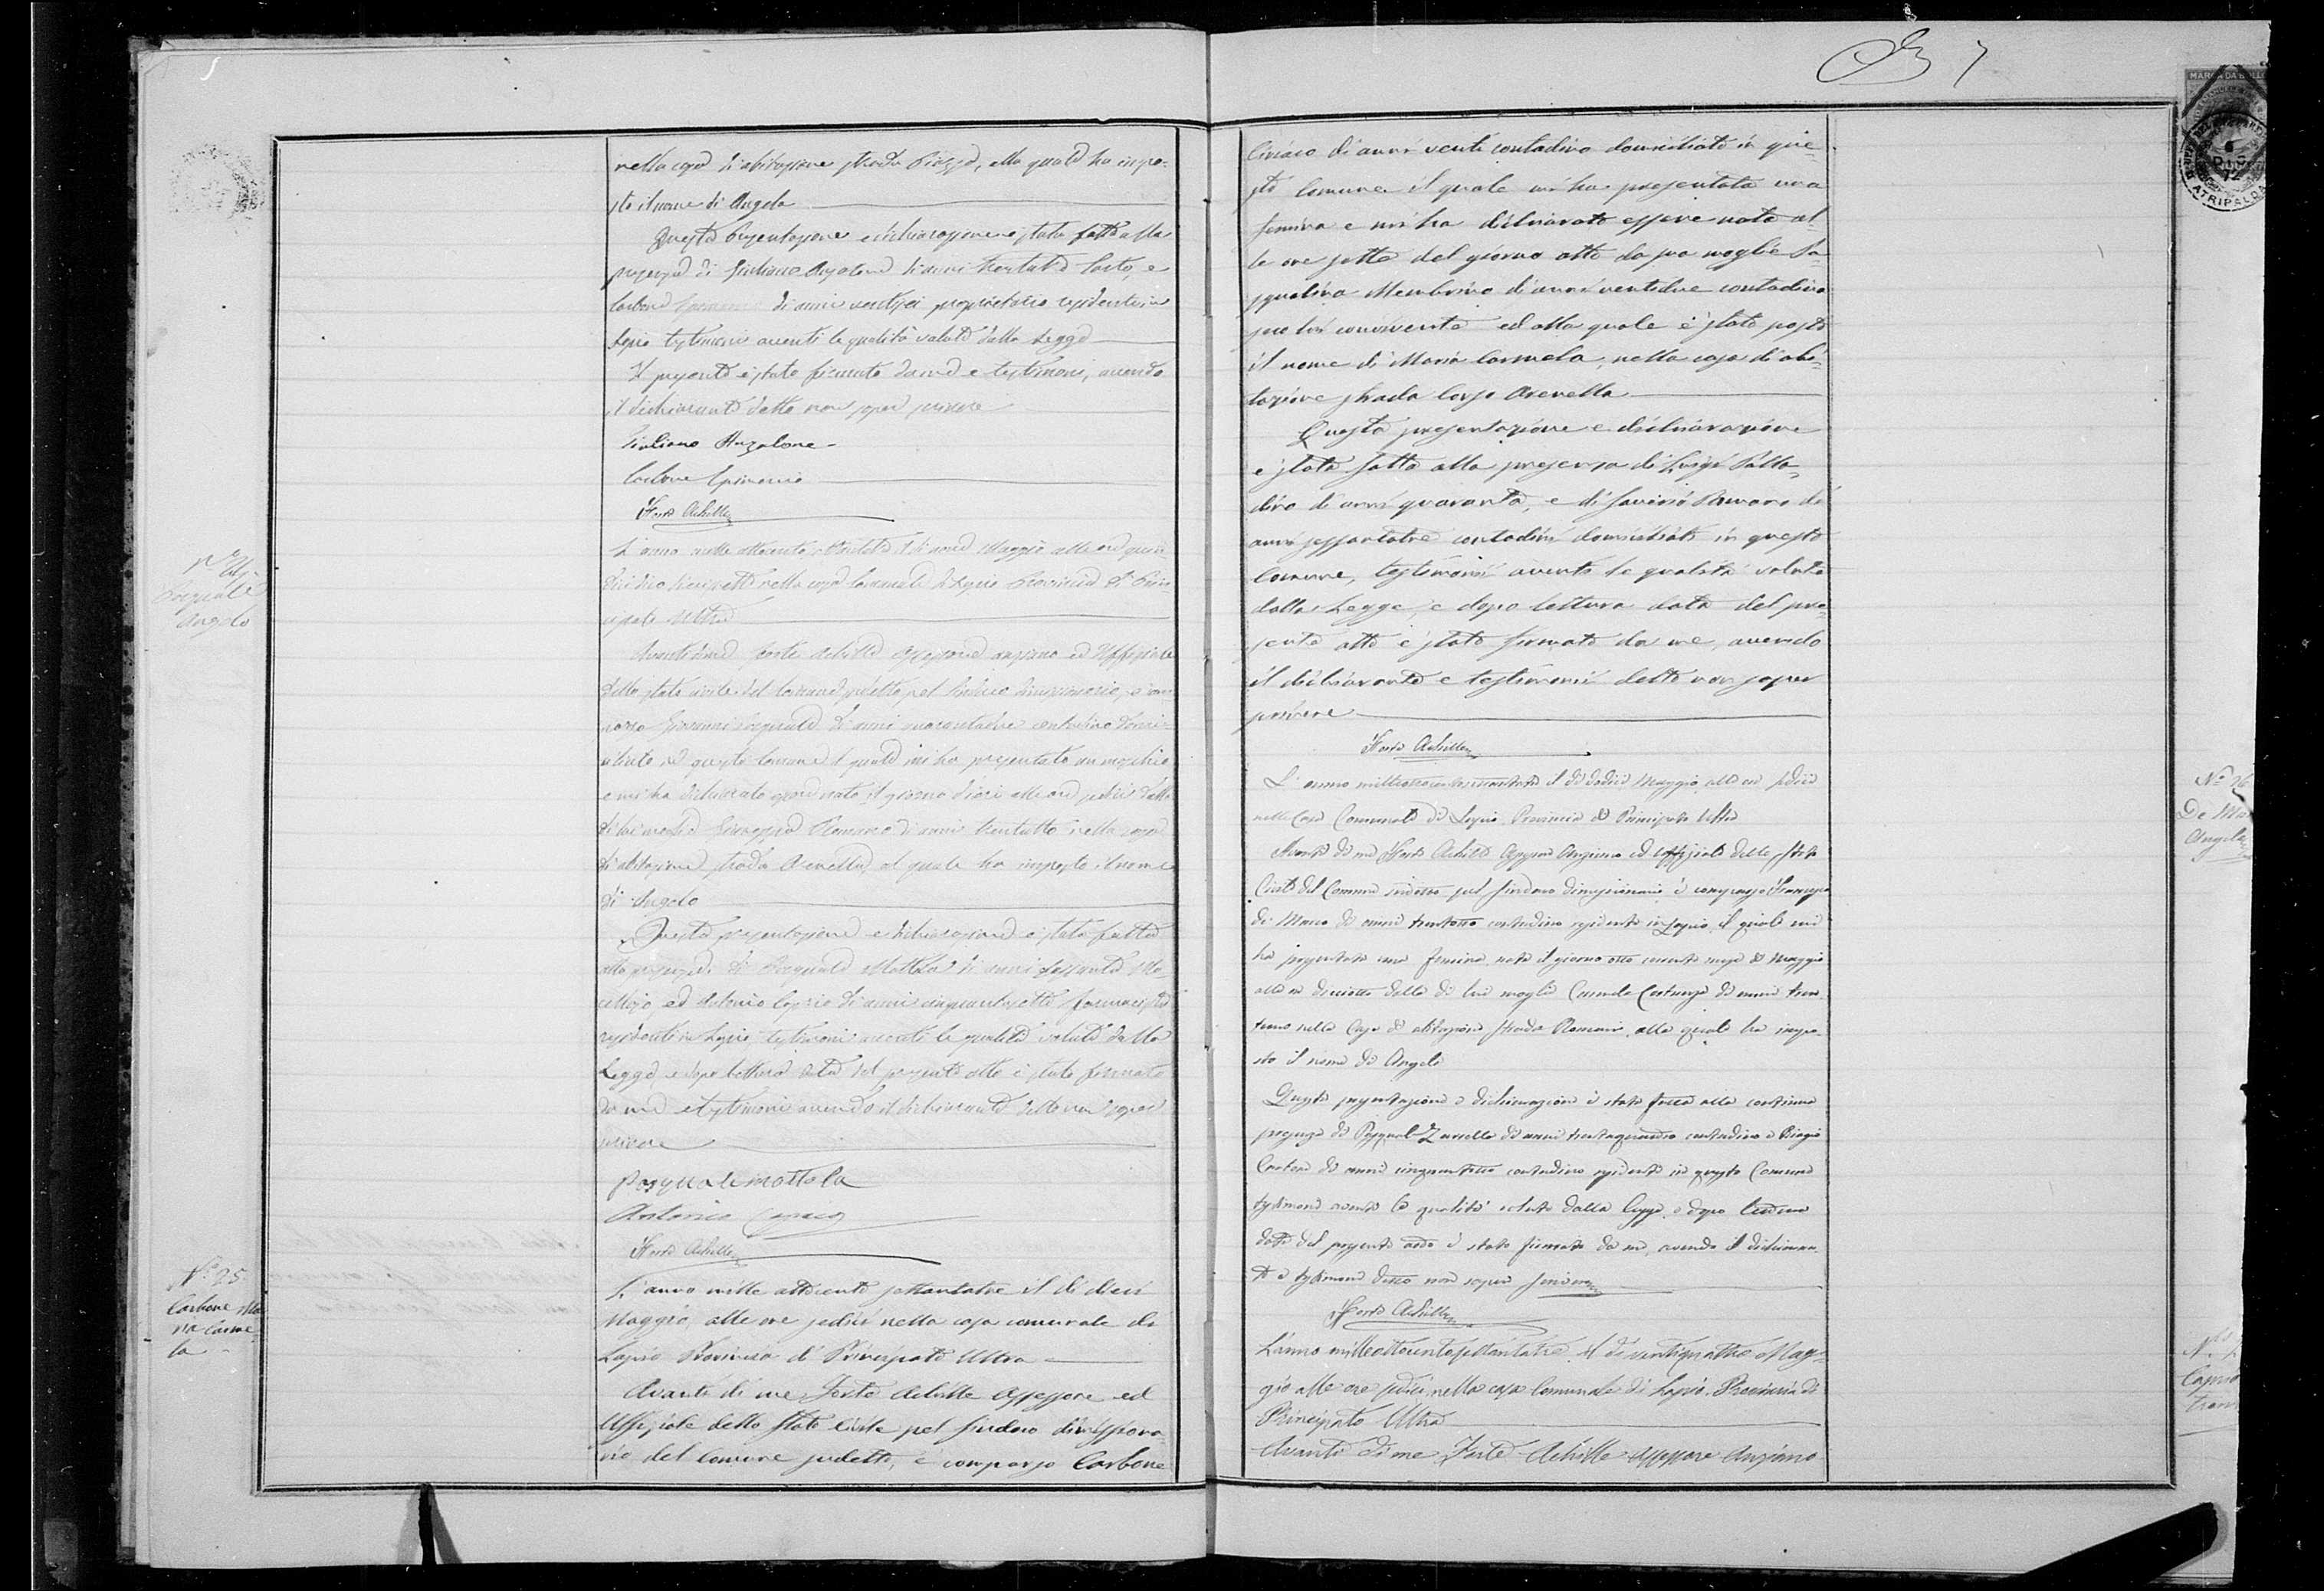 nella casa di abitazione strada Piazza, alla quale ha impo-
sto il nome di Angela
Questa presentazione e dichiarazione è stata fatta alla
presenza di Giuliano Anzalone di anni trentatre sarto, e
Carbone di anni ventisei proprietario residenti in
Lapio testimoni aventi le qualità volute dalla Legge
Il presente è stato firmato da me e testimoni, avendo
il dichiarante detto non saper scrivere
Giuliano Anzalone
Carbone
Forte Achille
N° 24
Pasquale
Angelo
L'anno mille ottocento settantatre, il dì Maggio alle ore
nella casa Comunale di Lapio Provincia di Prin-
cipato Ultra
Avanti di me Forte Achille Assessore anziano ed Uffiziale
dello stato civile del Comune suddetto pel Sindaco dimissionario, è com-
parso Giovanni Pasquale di anni quarantadue contadino domi-
ciliato in questo Comune il quale mi ha presentato un maschio
e mi ha dichiarato esser nato il giorno dieci alle ore sedici dalla
di lui moglie Giuseppa Romano di anni trentotto nella casa
di abitazione strada Arenella, al quale ha imposto il nome
di Angelo
Questa presentazione e dichiarazione è stata fatta
alla presenza di Pasquale Mottola di anni sessanta
ed Antonio Caprio di anni cinquantasette farmacista
residenti in Lapio, testimoni aventi le qualità volute dalla
Legge, e dopo lettura data del presente atto è stato firmato
da me e testimoni avendo il dichiarante detto non saper
scrivere
Pasquale Mottola
Antonio Caprio
Forte Achille
N° 25
Carbone Ma-
ria Carme-
la
L'anno mille ottocento settantatre il dì dieci
Maggio alle ore sedici nella casa comunale di
Lapio Provincia di Principato Ultra
Avanti di me Forte Achille Assessore ed
Uffiziale dello Stato Civile pel Sindaco dimissiona-
rio del Comune sudetto, è comparso Carbone
7
MARCA DA BOLLO
ATRIPALDA
Ciriaco di anni venti contadino domiciliato in que-
sto Comune il quale mi ha presentata una
femina e mi ha dichiarato essere nata al-
le ore sette del giorno otto da sua moglie Pa-
squalina Membrino di anni ventidue contadina
seco lui convivente ed alla quale è stato posto
il nome di Maria Carmela, nella casa di abi-
tazione strada largo Arenella
Questa presentazione e dichiarazione
è stata fatta alla presenza di Luigi Palla-
dino di anni quaranta, e di Saverio Romano di
anni sessantatre contadini domiciliati in questo
Comune, testimonii aventi le qualità volute
dalla Legge, e dopo lettura data del pre-
sente atto è stato firmato da me, avendo
il dichiarante e testimonii detto non saper
scrivere
Forte Achille
N° 26
De Ma
Angela
L'anno milleottocentosettantatre il dì dodici Maggio, alle ore sedici
nella Casa Comunale di Lapio Provincia di Principato Ultra
Avanti di me Forte Achille Assessore Anziano ed Uffiziale dello Stato
Civile del Comune sudetto pel Sindaco dimissionario è comparso Giuseppe
di Marco di anni trentotto contadino residente in Lapio, il quale mi
ha presentata una femina nata il giorno otto corrente mese di Maggio
alle ore diciotto dalla di lui moglie Carmela Costanza di anni tren-
tuno nella Casa di abitazione strada Romani, alla quale ha impo-
sto il nome di Angela
Questa presentazione e dichiarazione è stata fatta alla continua
presenza di Pasquale Zarrella di anni trentaquattro contadino e Biagio
di anni cinquantotto contadino residenti in questo Comune
testimoni aventi le qualità volute dalla legge, e dopo lettura
data del presente atto è stato firmato da me, avendo il dichiaran-
te e testimoni detto non saper scrivere
Forte Achille
N.
Caprio
L'anno milleottocentosettantatre, il dì ventiquattro Mag-
gio alle ore sedici nella casa Comunale di Lapio Provincia di
Principato Ultra
Avanti di me Forte Achille Assessore Anziano